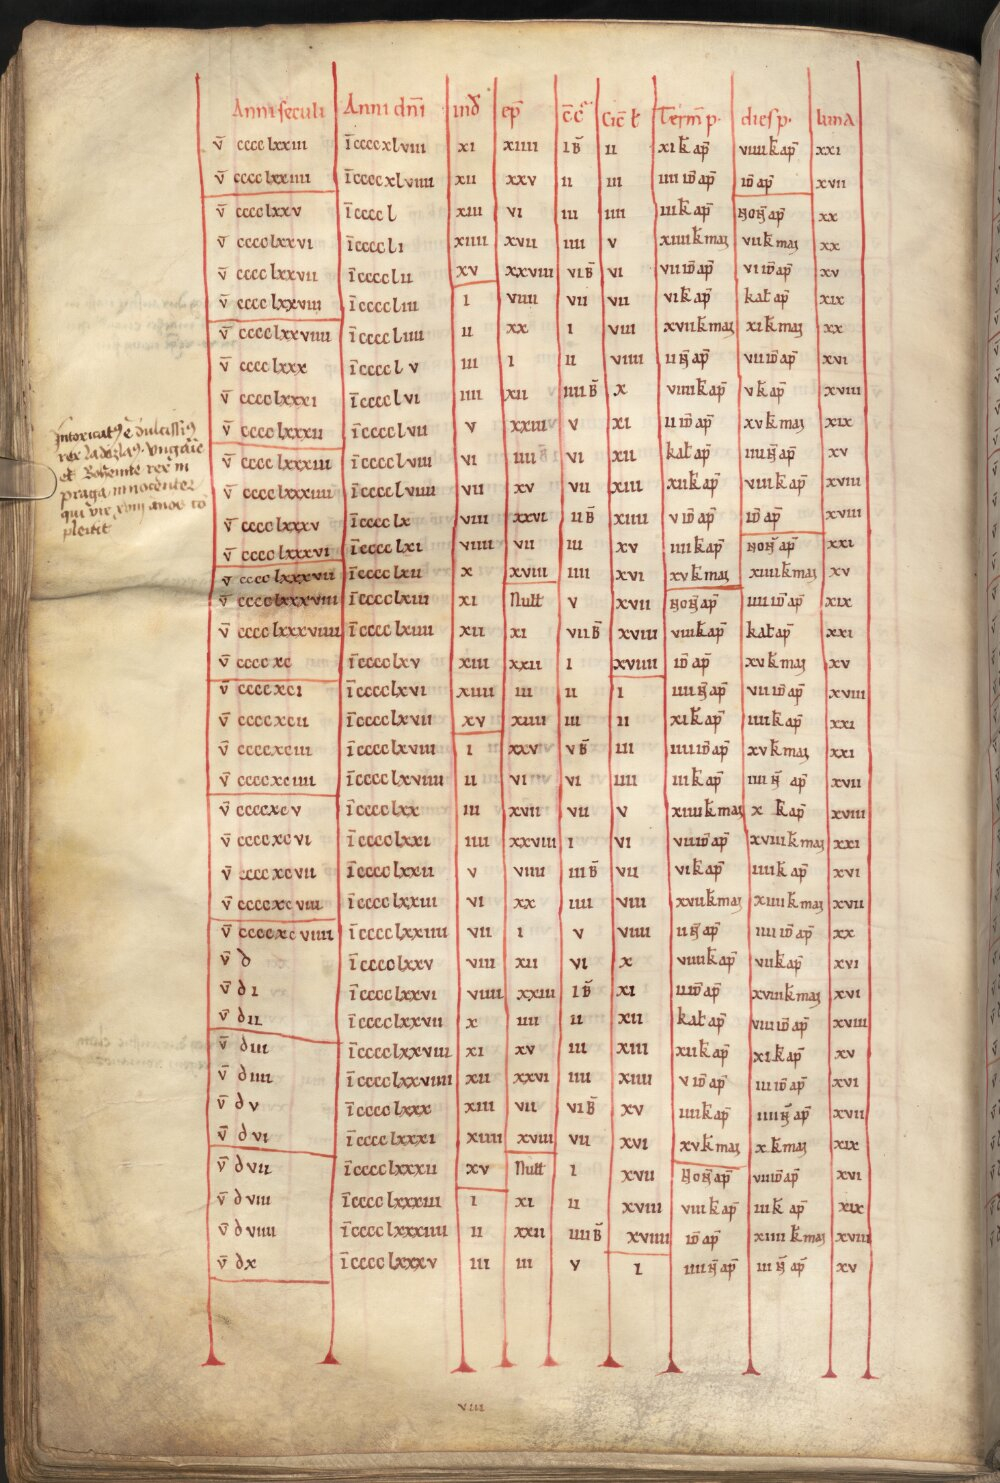 Anni seculi Anni dn̄i ind̄ ep̄ c̄c̄ cic̄ ł Term̄ p. dies p. luna
v̄ cccc lxxiii ī cccc xl viii xi xiiii i b̄ ii xi k̄ ap̄ viiii k̄ ap̄ xxi
v̄ cccc lxxiiii ī cccc xl viiii xii xxv ii iii iiii id̄ ap̄ id̄ ap̄ xvii
v̄ cccc lxxv ī cccc l xiii vi iii iiii iii k̄ ap̄ non̄ ap̄ xx
v̄ cccc lxxvi ī cccc l i xiiii xvii iiii v xiiii k̄ maı vii k̄ maı xx
v̄ cccc lxxvii ī cccc l ii xv xxviii vi b̄ vi vii id̄ ap̄ vi id̄ ap̄ xv
v̄ cccc lxxviii ī cccc l iii i viiii vii vii vi k̄ ap̄ kał ap̄ xix
v̄ cccc lxxviiii ī cccc l iiii ii xx i viii xvii k̄ maı xi k̄ maı xx
v̄ cccc lxxx ī cccc l v iii i ii viiii ii n̄ ap̄ vii id̄ ap̄ xvi
v̄ cccc lxxxi ī cccc l vi iiii xii iiii b̄ x viiii k̄ ap̄ v k̄ ap̄ xviii
v̄ cccc lxxxii ī cccc l vii v xxiii v xi ii id̄ ap̄ xv k̄ maı xix
v̄ cccc lxxxiii ī cccc l viii vi iiii vi xii kał ap̄ iiii n̄ ap̄ xv
v̄ cccc lxxxiiii ī cccc l viiii vii xv vii xiii xii k̄ ap̄ viii k̄ ap̄ xviii
v̄ cccc lxxxv ī cccc lx viii xxvi ii b̄ xiiii v id̄ ap̄ id̄ ap̄ xviii
v̄ cccc lxxxvi ī cccc lxi viiii vii iii xv iiii k̄ ap̄ non̄ ap̄ xxi
v̄ cccc lxxxvii ī cccc lxii x xviii iiii xvi xv k̄ maı xiiii k̄ maı xv
v̄ cccc lxxxviii ī cccc lxiii xi Nułł v xvii non̄ ap̄ iiii id̄ ap̄ xix
v̄ cccc lxxxviiii ī cccc lxiiii xii xi vii b̄ xviii viii k̄ ap̄ kał ap̄ xxi
v̄ cccc xc ī cccc lxv xiii xxii i xviiii id̄ ap̄ xv k̄ maı xv
v̄ cccc xci ī cccc lxvi xiiii iii ii i iiii n̄ ap̄ vii id̄ ap̄ xviii
v̄ cccc xcii ī cccc lxvii xv xiiii iii ii xi k̄ ap̄ iiii k̄ ap̄ xxi
v̄ cccc xciii ī cccc lxviii i xxv v b̄ iii iiii id̄ ap̄ xv k̄ maı xxi
v̄ cccc xciiii ī cccc lxviiii ii vi vi iiii iii k̄ ap̄ iiii n̄ ap̄ xvii
v̄ cccc xc v ī cccc lxx iii xvii vii v xiiii k̄ maı x k̄ ap̄ xviii
v̄ cccc xc vi ī cccc lxxi iiii xxviii i vi vii id̄ ap̄ xviii k̄ maı xxi
v̄ cccc xc vii ī cccc lxxii v viiii iii b̄ vii vi k̄ ap̄ iiii k̄ ap̄ xvi
v̄ cccc xc viii ī cccc lxxiii vi xx iiii viii xvii k̄ maı xiiii k̄ maı xvii
v̄ cccc xc viiii ī cccc lxxiiii vii i v viiii ii n̄ ap̄ iiii id̄ ap̄ xx
v̄ d ī cccc lxxv viii xii vi x viiii k̄ ap̄ vii k̄ ap̄ xvi
v̄ d i ī cccc lxxvi viiii xxiii i b̄ xi ii id̄ ap̄ xviii k̄ maı xvi
v̄ d ii ī cccc lxxvii x iiii ii xii kał ap̄ viii id̄ ap̄ xviii
v̄ d iii ī cccc lxxviii xi xv iii xiii xii k̄ ap̄ xi k̄ ap̄ xv
v̄ d iiii ī cccc lxxviiii xii xxvi iiii xiiii v id̄ ap̄ iii id̄ ap̄ xvi
v̄ d v ī cccc lxxx xiii vii vi b̄ xv iiii k̄ ap̄ iiii n̄ ap̄ xvii
v̄ d vi ī cccc lxxxi xiiii xviii vii xvi xv k̄ maı x k̄ maı xix
v̄ d vii ī cccc lxxxii xv Nułł i xvii non̄ ap̄ viii id̄ ap̄ xvi
v̄ d viii ī cccc lxxxiii i xi ii xviii viii k̄ ap̄ iii k̄ ap̄ xix
v̄ d viiii ī cccc lxxxiiii ii xxii iiii b̄ xviiii id̄ ap̄ xiiii k̄ maı xviii
v̄ d x ī cccc lxxxv iii iii v i iiii n̄ ap̄ iii n̄ ap̄ xv
Intoxicatꝰ ē dulcissimꝰ
rex ladizlaꝰ. Ungarie
et Bohemie rex in
praga innocenter
qui vix xviii annos cō
plevit
viii